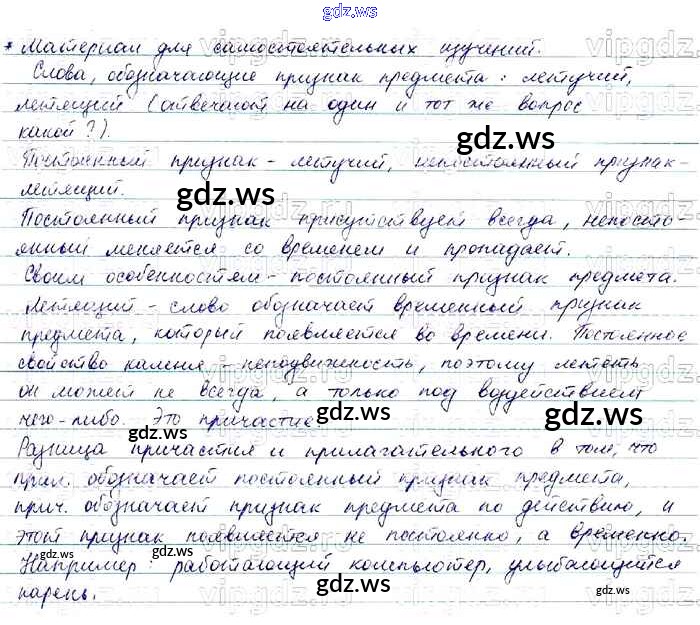 gdz.ws
* Материал для самостоятельных изучений.
Слова, обозначающие признак предмета: летучий,
летящий (отвечают на один и тот же вопрос
какой?).
gdz.ws
Постоянный признак - летучий, непостоянный признак-
летящий.
gdz.ws
Постоянный признак присутствует всегда, непосто-
янный меняется со временем и пропадает.
Своим особенностям - постоянный признак предмета.
Летящий - слово обозначает временный признак
предмета, который появляется во времени. Постоянное
свойство камня - неподвижность, поэтому лететь
он может не всегда, а только под воздействием
чего-либо. Это причастие.
gdz.ws
gdz.ws
gdz.ws
Разница причастия и прилагательного в том, что
прил. обозначает постоянный признак предмета,
gdz.ws
gdz.ws
прич. обозначает признак предмета по действию, и
этот признак появляется не постоянно, а временно.
gdz.ws
gdz.ws
Например: работающий компьютер, улыбающийся
парень.
gdz.ws
gdz.ws
gdz.ws